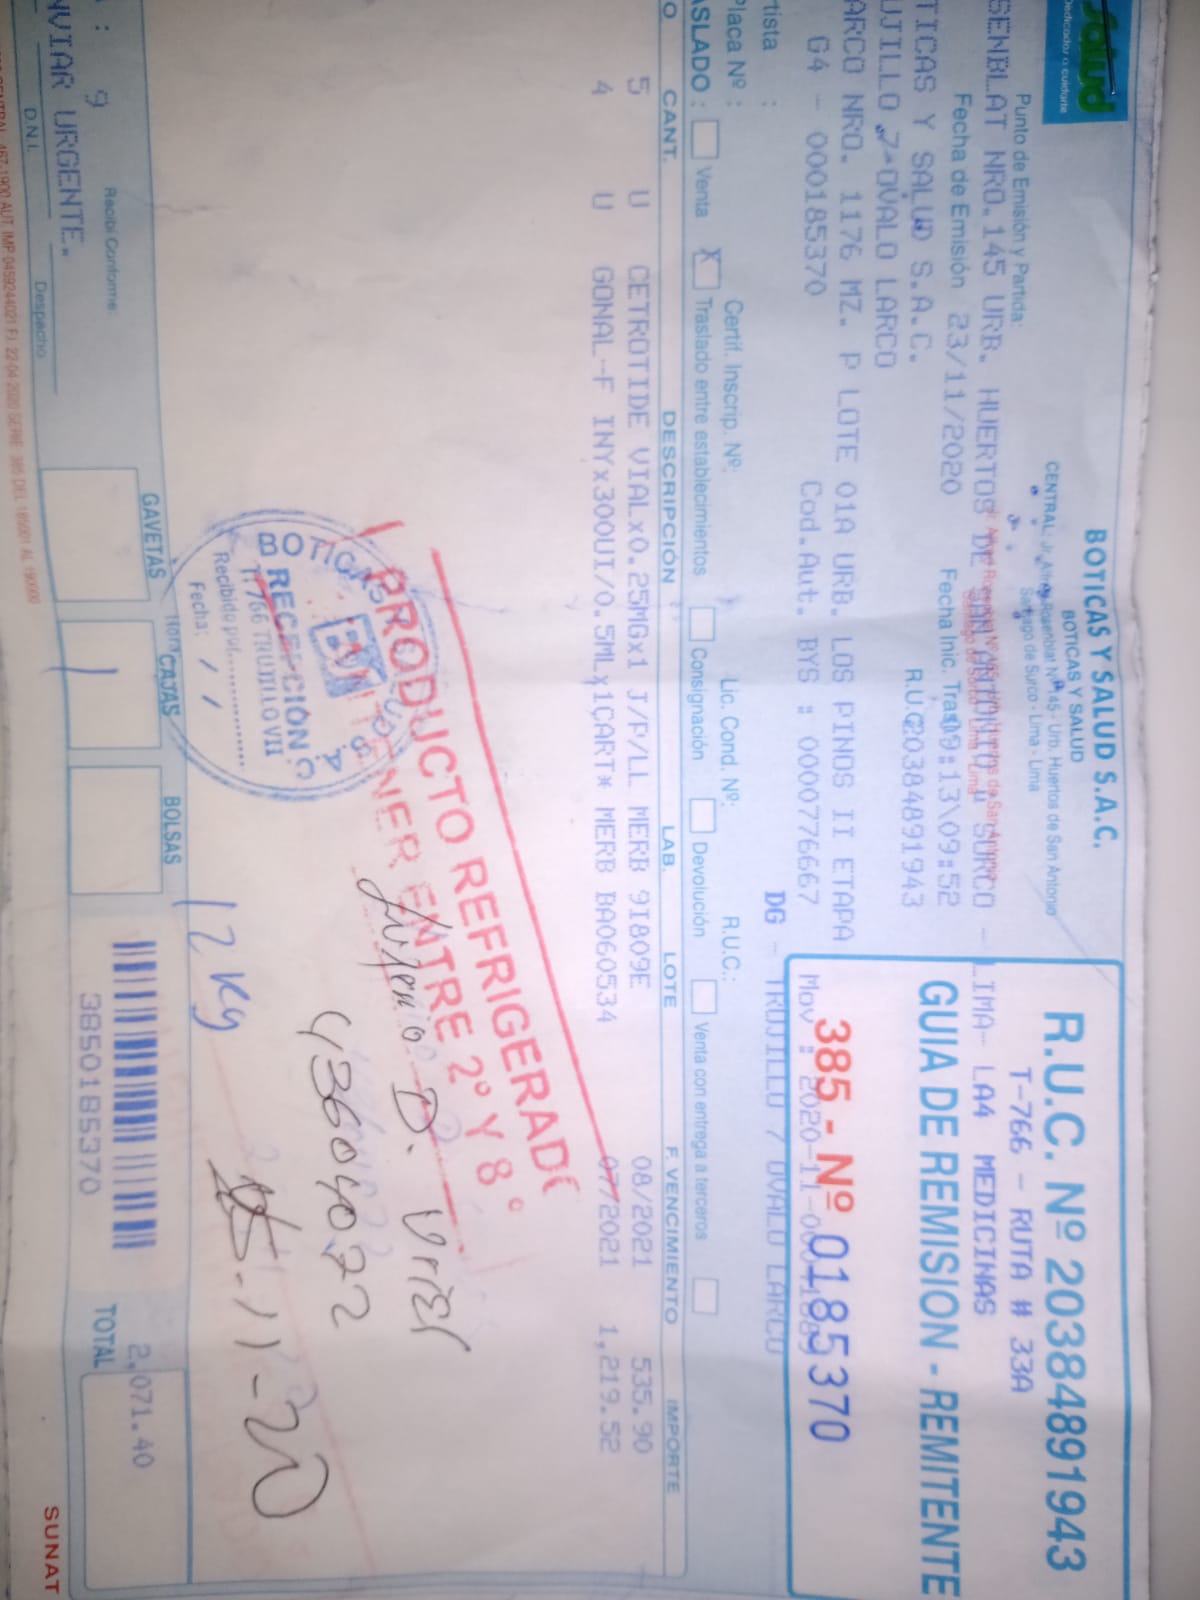 Salud
Dedicados a cuidarte
BOTICAS Y SALUD S.A.C.
BOTICAS Y SALUD
CENTRAL: Jr. Alfredo Rosenblat Nº 145 - Urb. Huertos de San Antonio
Santiago de Surco - Lima - Lima
R.U.C. Nº 20384891943
T-766 - RUTA # 33A
GUIA DE REMISION - REMITENTE
385 - Nº 0185370
Punto de Emisión y Partida:
SENBLAT NRO.145 URB. HUERTOS DE SAN ANTONIO - SURCO - LIMA- LA4 MEDICINAS
Fecha de Emisión 23/11/2020 Fecha Inic. Tras 09:13\09:52
TICAS Y SALUD S.A.C. R.U.C 20384891943
UJILLO 7-OVALO LARCO
ARCO NRO. 1176 MZ. P LOTE 01A URB. LOS PINOS II ETAPA
G4 - 000185370 Cod.Aut. BYS : 0000776667 Mov : 2020-11-
DG - TRUJILLO 7 OVALO LARCO
tista :
Placa Nº : Certif. Inscrip. Nº: Lic. Cond. Nº: R.U.C.:
ASLADO : Venta X Traslado entre establecimientos Consignación Devolución Venta con entrega a terceros
O CANT. DESCRIPCIÓN LAB. LOTE F. VENCIMIENTO IMPORTE
5 U CETROTIDE VIALx0.25MGx1 J/P/LL MERB 9I809E 08/2021 535.90
4 U GONAL-F INYx300UI/0.5MLx1CART* MERB BA060534 07/2021 1,219.52
PRODUCTO REFRIGERADO
MANTENER ENTRE 2° Y 8°
BOTICAS Y SALUD S.A.C.
RECEPCIÓN
T-766 TRUJILLO VII
Recibido por
Fecha: / /
D. Uriel
43604072
25-11-20
12 Kg
: 9 Recibí Conforme:
NVIAR URGENTE.
D.N.I. Despacho
GAVETAS CAJAS BOLSAS
1
3850185370
TOTAL
2,071.40
SUNAT